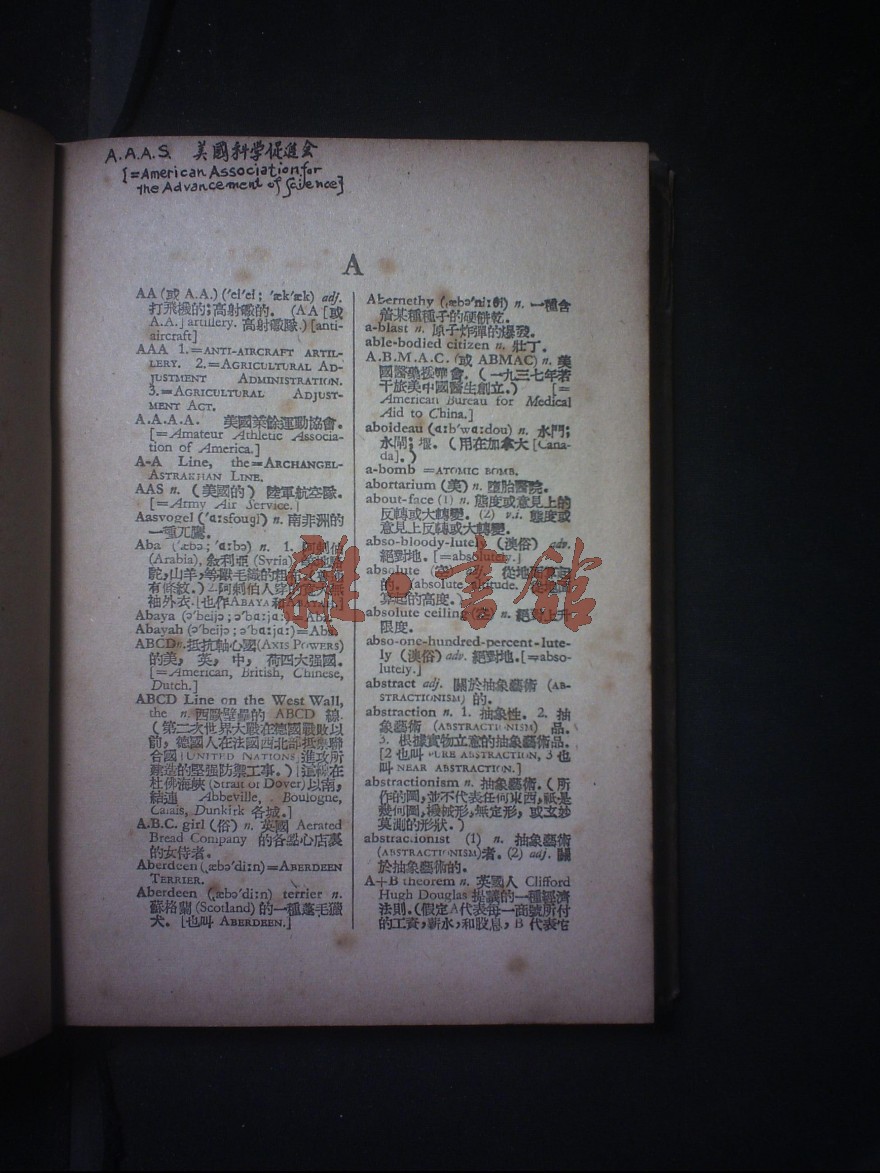 A.A.A.S. 美國科学促進会
[=American Association for
the Advancement of Sciience]
A
AA (或 A.A.) ('ei'ei; 'æk'æk) adj.
打飛機的;高射礮的. (AA [或
A.A.] artillery. 高射礮隊.) [anti-
aircraft]
AAA 1.=ANTI-AIRCRAFT ARTIL-
LERY. 2.=AGRICULTURAL AD-
JUSTMENT ADMINISTRATION.
3.=AGRICULTURAL ADJUST-
MENT ACT.
A.A.A.A. 美國業餘運動協會.
[=Amateur Athletic Associa-
tion of America.]
A-A Line, the=ARCHANGEL-
ASTRAKHAN LINE.
AAS n. (美國的) 陸軍航空隊.
[=Army Air Service.]
Aasvogel ('ɑ:sfougl) n. 南非洲的
一種兀鷹.
Aba ('æbə; 'ɑ:bə) n. 1. 阿剌伯
(Arabia), 敍利亞 (Syria)
駝,山羊,等獸毛織的粗
有條紋.) 2.阿剌伯人穿的
袖外衣.[也作ABAYA 和
Abaya (ə'beijə; ə'bɑ:jɑ:)=Aba.
Abayah (ə'beijə; ə'bɑ:jɑ:)=Aba.
ABCD n.抵抗軸心國(AXIS POWERS)
的美, 英, 中, 荷四大强國.
[=American, British, Chinese,
Dutch.]
ABCD Line on the West Wall,
the n.西歐壁壘的 ABCD 線.
(第二次世界大戰在德國戰敗以
前, 德國人在法國西北部抵禦聯
合國[UNITED NATIONS]進攻所
建造的堅强防禦工事.) [這線在
杜佛海峽(Strait of Dover)以南,
結連 Abbeville, Boulogne,
Calais, Dunkirk 各城.]
A.B.C. girl (俗) n. 英國 Aerated
Bread Company 的各點心店裏
的女侍者.
Aberdeen (ˌæbə'di:n)=ABERDEEN
TERRIER.
Aberdeen (ˌæbə'di:n) terrier n.
蘇格蘭 (Scotland) 的一種蓬毛獵
犬. [也叫 ABERDEEN.]
Abernethy (ˌæbə'ni:θi) n. 一種含
著某種種子的硬餅乾.
a-blast n. 原子炸彈的爆發.
able-bodied citizen n. 壯丁.
A.B.M.A.C. (或 ABMAC) n. 美
國醫藥援華會. (一九三七年若
干旅美中國醫生創立.) [=
American Bureau for Medical
Aid to China.]
aboideau (ɑ:b'wɑ:dou) n. 水門;
水閘; 堰. (用在加拿大 [Cana-
da].)
a-bomb =ATOMIC BOMB.
abortarium (美) n. 墮胎醫院.
about-face (1) n. 態度或意見上的
反轉或大轉變. (2) v.i. 態度或
意見上反轉或大轉變.
abso-bloody-lutely (澳俗) adv.
絕對地. [=absolutely.]
absolute (空) 從地面
的. (absolute altitude.
算起的高度.)
absolute ceiling (空) n. 絕對上升
限度.
abso-one-hundred-percent-lute-
ly (澳俗) adv. 絕對地.[=abso-
lutely.]
abstract adj. 關於抽象藝術 (AB-
STRACTIONISM) 的.
abstraction n. 1. 抽象性. 2. 抽
象藝術 (ABSTRACTIONISM) 品.
3. 根據實物立意的抽象藝術品.
[2 也叫 PURE ABSTRACTION, 3 也
叫 NEAR ABSTRACTION.]
abstractionism n. 抽象藝術.(所
作的圖,並不代表任何東西,祇是
幾何圖,機械形,無定形, 或玄妙
莫測的形狀.)
abstractionist (1) n. 抽象藝術
(ABSTRACTIONISM)者. (2) adj. 關
於抽象藝術的.
A+B theorem n. 英國人 Clifford
Hugh Douglas 提議的一種經濟
法則.(假定A代表每一商號所付
的工資,薪水,和股息, B 代表它
雜·書館